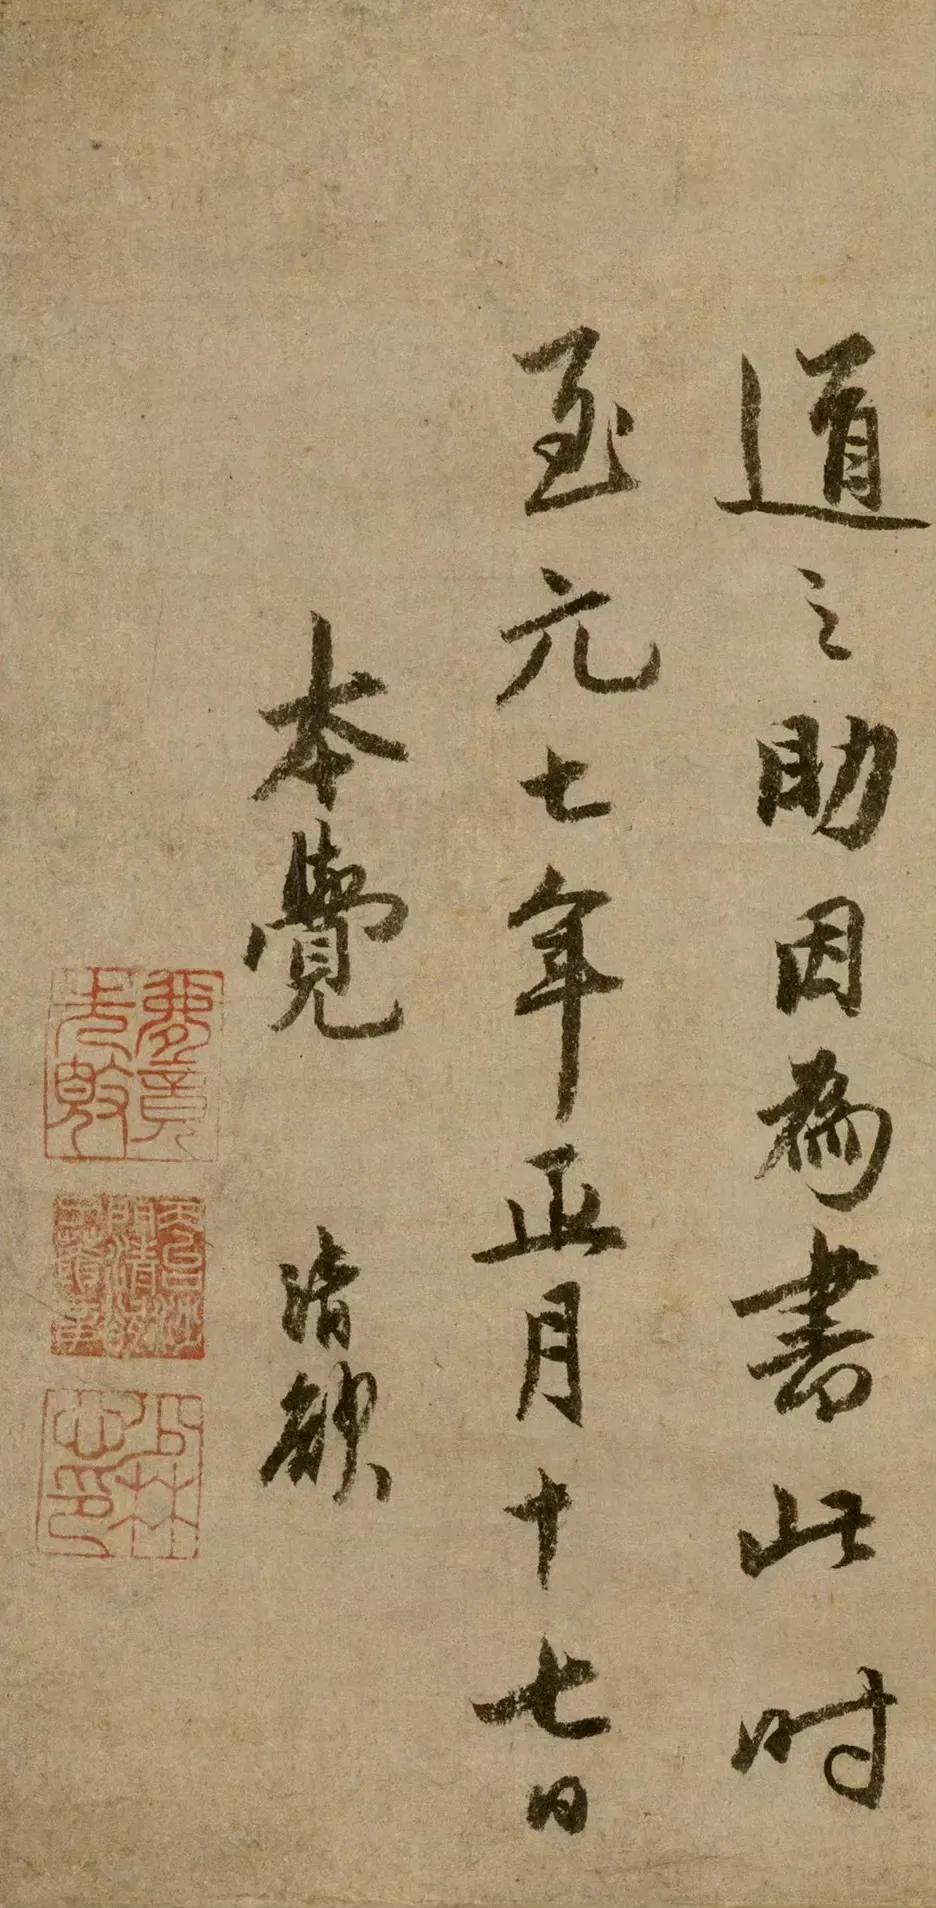 道之助因為書此时
至元七年正月十七日
本覺 清欲